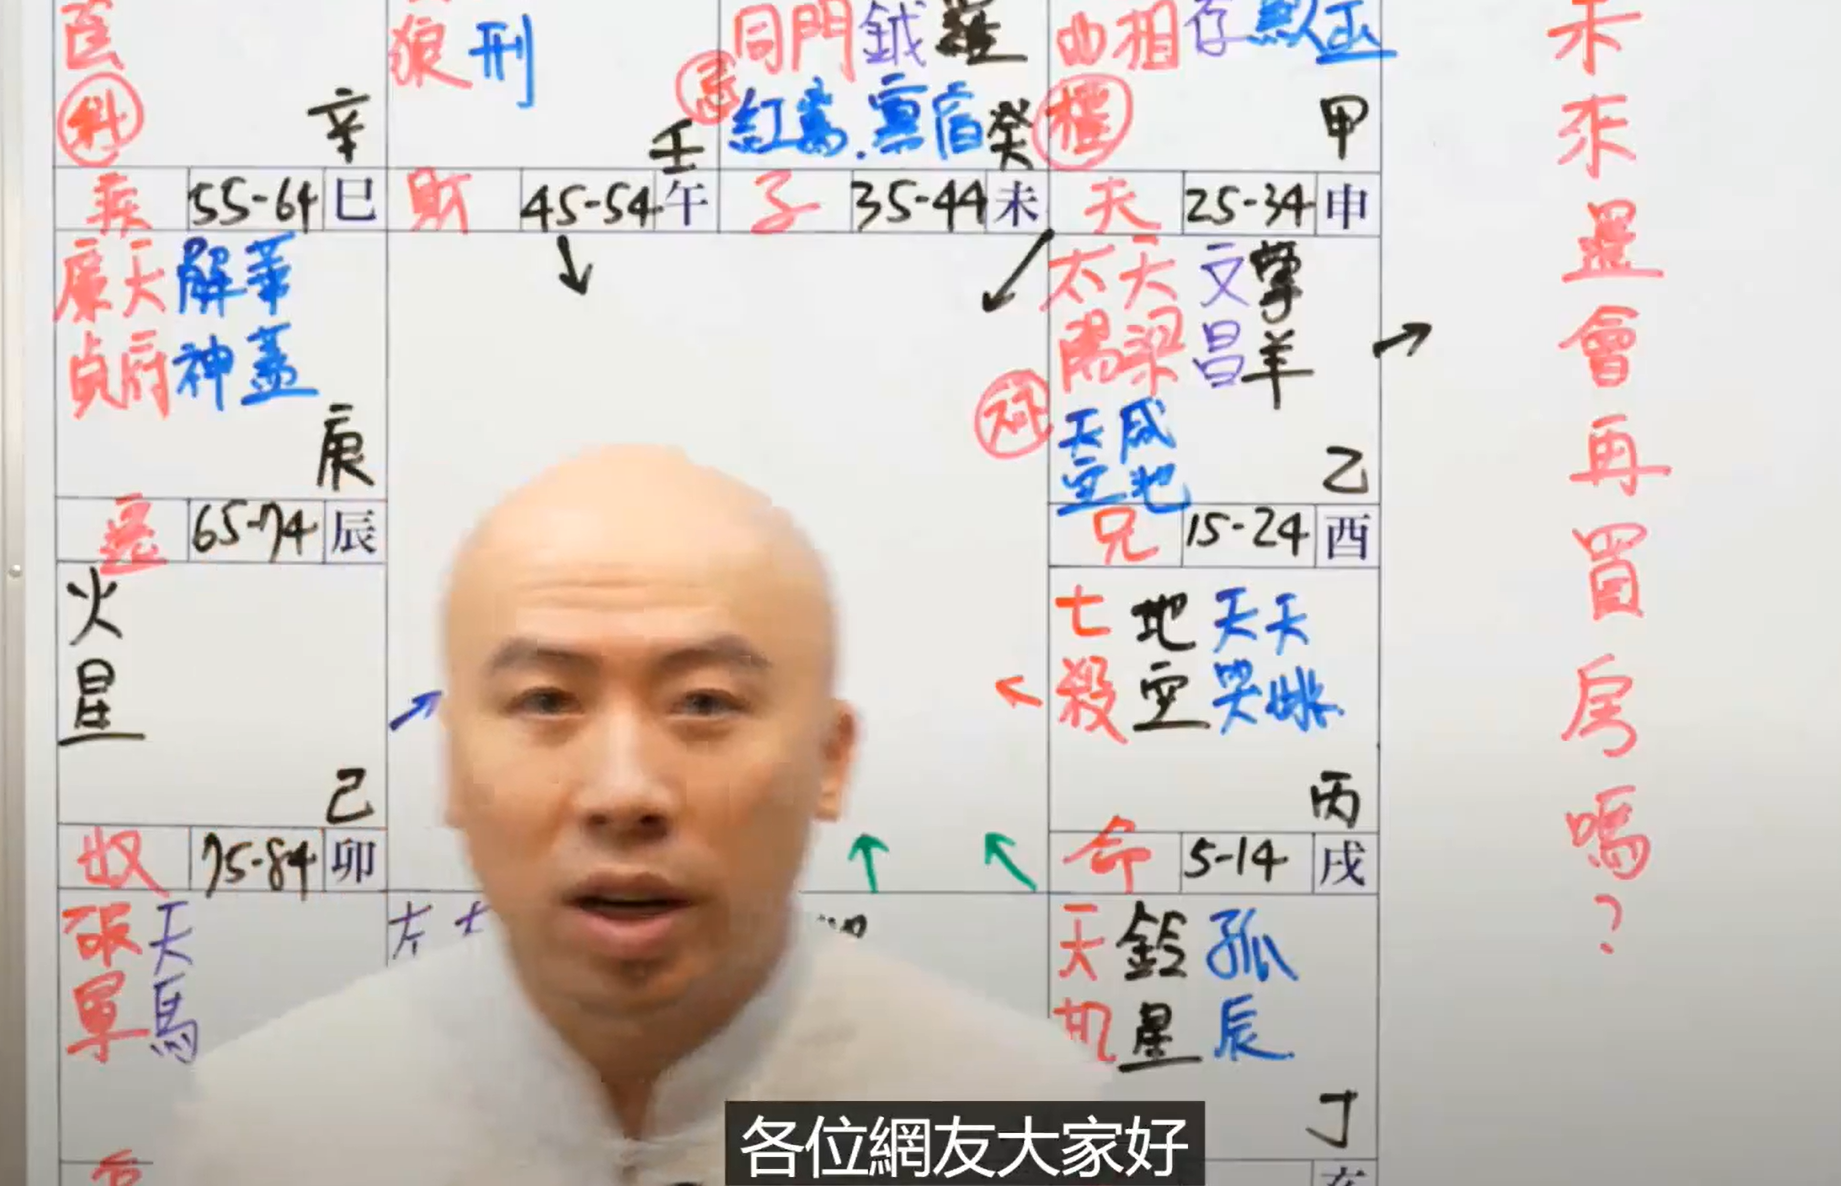 狼 刑
同 門 鉞 羅
曲 相 存
科
辛
忌
紅 鸞 寡 宿 癸
壬
權
甲
疾 55-64 巳
財 45-54 午
子 35-44 未
夫 25-34 申
廉 天 解 華
貞 府 神 蓋
庚
太 天 文 擎
陽 梁 昌 羊
祿
天 咸
空 池
乙
遷 65-74 辰
兄 15-24 酉
火
星
己
七 地 天 天
殺 空 哭 姚
丙
奴 75-84 卯
命 5-14 戌
破 天
軍 馬
左
天 鈴 孤
機 星 辰
丁
未來還會再買房嗎?
各位網友大家好